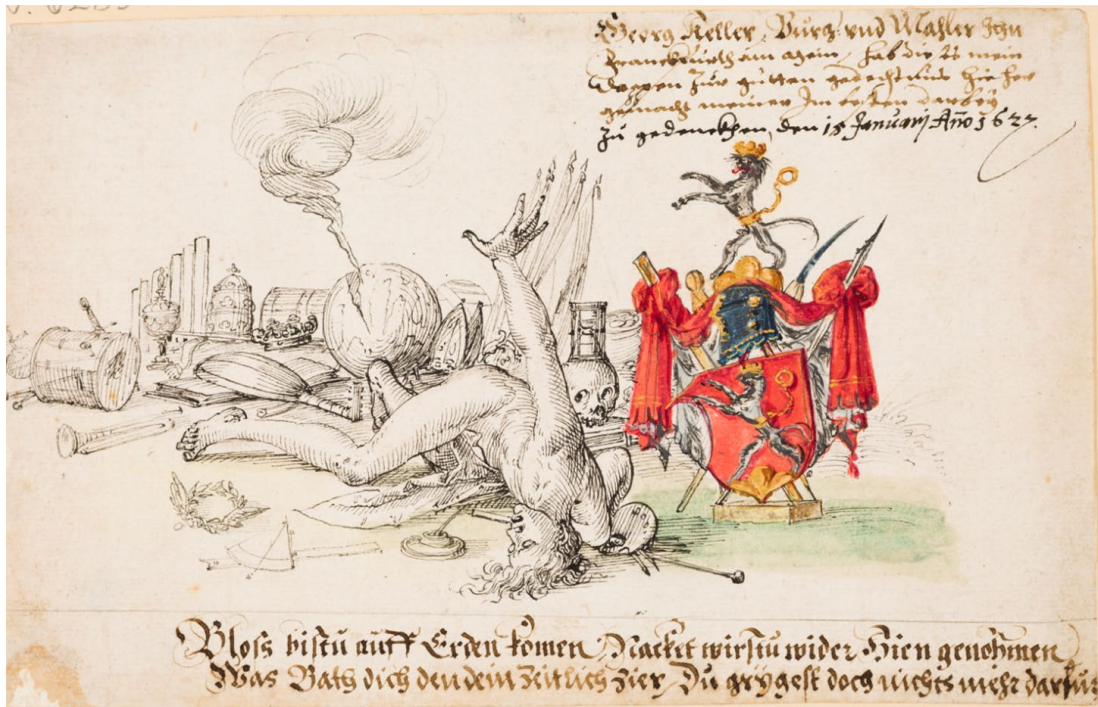 Georg Keller, Burg: vnd Mahler Inn
Franckfurth am Mein, hab dis mein
Wappen zur gutten gedechtnus hieher
gemacht meiner Im besten darbey
zu gedenckhen, den 15 Januarj Año 1627.
Bloss bistu auff Erden komen Nacket wirstu wider Hien genohmen
Was Bath dich den dein zeitlich zier, Du
doch nichts mehr darfur